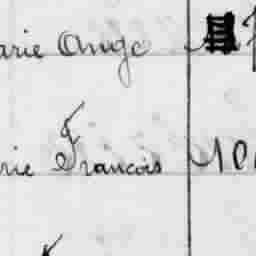 arie Ange
rie François